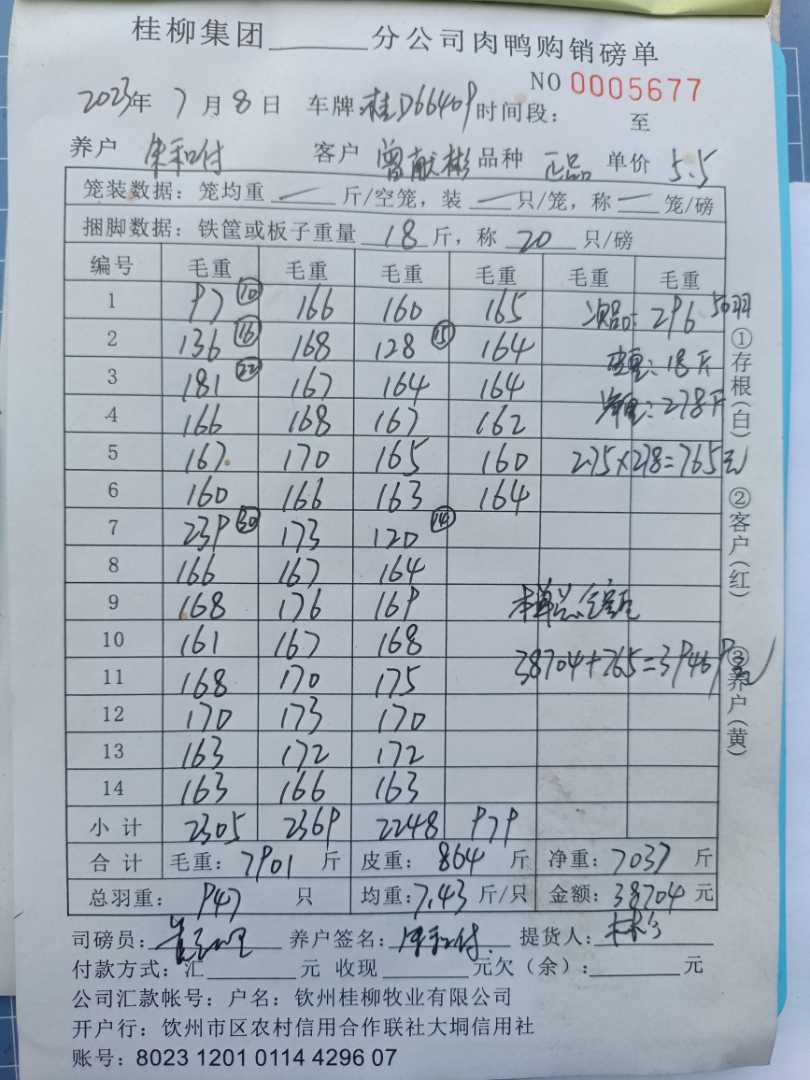 桂柳集团______分公司肉鸭购销磅单
NO 0005677
2023年 7月8日 车牌:桂D66409 时间段: 至
养户 客户 曾献彬 品种 正品 单价 5.5
笼装数据: 笼均重 一 斤/空笼, 装 一 只/笼, 称 一 笼/磅
捆脚数据: 铁筐或板子重量 18 斤, 称 20 只/磅
编号 毛重 毛重 毛重 毛重 毛重 毛重
1 97 ⑩ 166 160 165 次品: 296 50羽
2 136 ⑯ 168 128 ⑮ 164 皮重: 18斤
3 181 ㉒ 167 164 164 净重: 278斤
4 166 168 167 162
5 167 170 165 160 2.75×278=765元
6 160 166 163 164
7 239 ㉚ 173 120 ⑭
8 166 167 164
9 168 176 169 本单总金额
10 161 167 168
11 168 170 175 38704+765=39469元
12 170 173 170
13 163 172 172
14 163 166 163
小计 2305 2369 2248 979
合计 毛重: 7901 斤 皮重: 864 斤 净重: 7037 斤
总羽重: 947 只 均重: 7.43 斤/只 金额: 38704 元
司磅员: 养户签名: 提货人:
付款方式: 汇______元 收现______元欠(余):______元
公司汇款帐号: 户名: 钦州桂柳牧业有限公司
开户行: 钦州市区农村信用合作联社大垌信用社
账号: 8023 1201 0114 4296 07
①存根(白) ②客户(红) ③养户(黄)